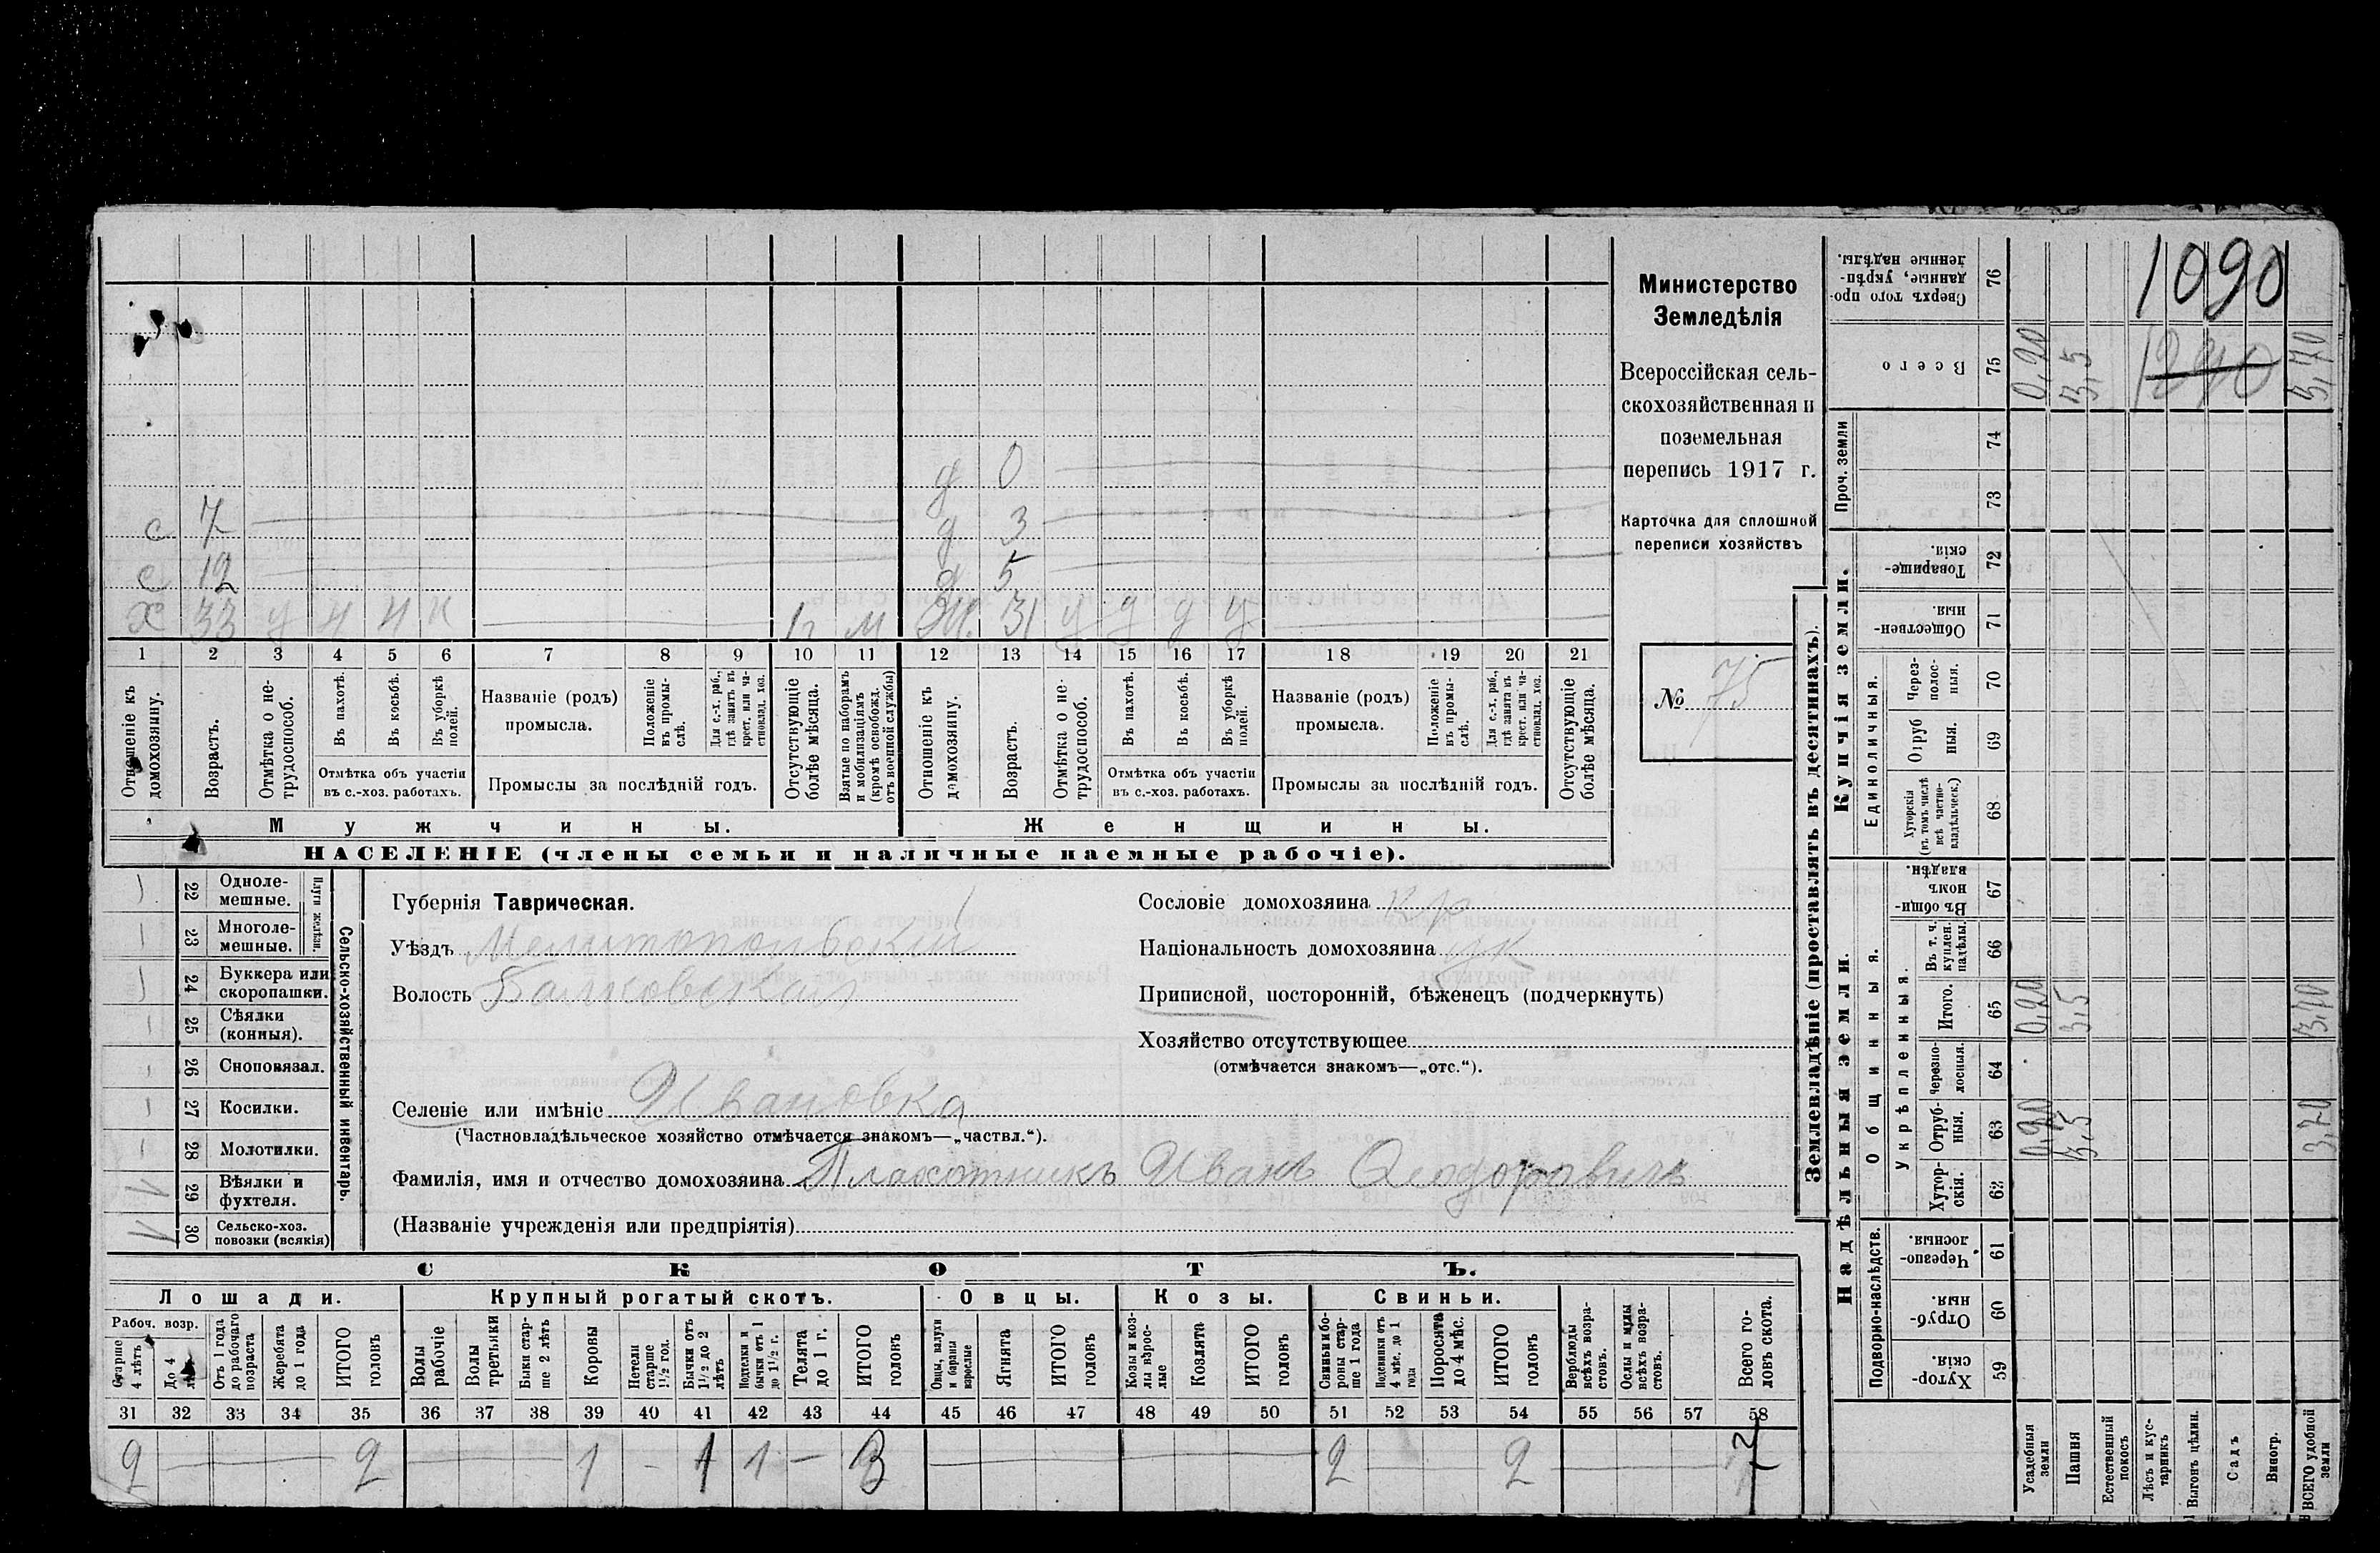 1090
1240
Министерство
Земледѣлія
Всероссійская сель-
скохозяйственная и
поземельная
перепись 1917 г.
Карточка для сплошной
переписи хозяйствъ
№ 75
д 0
с 7 д 3
с 12 д 5
х 33 у ч ч к 1г м Ж. 31 у д д у
1 2 3 4 5 6 7 8 9 10 11 12 13 14 15 16 17 18 19 20 21
Отношеніе къ домохозяину.
Возрастъ.
Отмѣтка о не-трудоспособ.
Въ пахотѣ.
Въ косьбѣ.
Въ уборкѣ полей.
Отмѣтка объ участіи
въ с.-хоз. работахъ.
Названіе (родъ)
промысла.
Положеніе въ промы-слѣ.
Для с.-х. раб., гдѣ занятъ въ крест. или ча-стновлад. хоз.
Промыслы за послѣдній годъ.
Отсутствующіе болѣе мѣсяца.
Взятые по наборамъ и мобилизаціямъ (кромѣ освобожд. отъ военной службы)
Отношеніе къ домохозяину.
Возрастъ.
Отмѣтка о не-трудоспособ.
Въ пахотѣ.
Въ косьбѣ.
Въ уборкѣ полей.
Отмѣтка объ участіи
въ с.-хоз. работахъ.
Названіе (родъ)
промысла.
Положеніе въ промы-слѣ.
Для с.-х. раб., гдѣ занятъ въ крест. или ча-стновлад. хоз.
Промыслы за послѣдній годъ.
Отсутствующіе болѣе мѣсяца.
Мужчины.
Женщины.
НАСЕЛЕНІЕ (члены семьи и наличные наемные рабочіе).
22 Одноле-мешные.
23 Многоле-мешные.
Плуги желѣзн.
24 Буккера или скоропашки.
25 Сѣялки (конныя).
26 Сноповязал.
27 Косилки.
28 Молотилки.
29 Вѣялки и фухтеля.
30 Сельско-хоз. повозки (всякія)
Сельско-хозяйственный инвентарь.
Губернія Таврическая.
Уѣздъ Мелитопольскій
Волость Балковская
Сословіе домохозяина кр
Національность домохозяина ук
Приписной, посторонній, бѣженецъ (подчеркнуть)
Хозяйство отсутствующее
(отмѣчается знакомъ—„отс.“).
Селеніе или имѣніе Ивановка
(Частновладѣльческое хозяйство отмѣчается знакомъ—„частвл.“).
Фамилія, имя и отчество домохозяина Плахотникъ Иванъ Ѳеодоровичъ
(Названіе учрежденія или предпріятія)
СКОТЪ.
Лошади. Крупный рогатый скотъ. Овцы. Козы. Свиньи.
Рабоч. возр.
Старше 4 лѣтъ
До 4 лѣтъ
Отъ 1 года до рабочаго возраста
Жеребята до 1 года
ИТОГО головъ
Волы рабочіе
Волы третьяки
Быки стар-ше 2 лѣтъ
Коровы
Нетели старше 1½ год.
Бычки отъ 1½ до 2 лѣтъ
Подтелки и бычки отъ 1 до 1½ г.
Телята до 1 г.
ИТОГО головъ
Овцы, валухи и бараны взрослые
Ягнята
ИТОГО головъ
Козы и коз-лы взрос-лые
Козлята
ИТОГО головъ
Свиньи и бо-ровы стар-ше 1 года
Подсвинки отъ 4 мѣс. до 1 года
Поросята до 4 мѣс.
ИТОГО головъ
Верблюды всѣхъ возра-стовъ.
Ослы и мулы всѣхъ возра-стовъ.
Всего го-ловъ скота.
31 32 33 34 35 36 37 38 39 40 41 42 43 44 45 46 47 48 49 50 51 52 53 54 55 56 57 58
2 2 1 - 1 1 - 3 2 2 7
Землевладѣніе (проставлять въ десятинахъ).
Надѣльныя земли.
Купчія земли.
Проч. земли
Подворно-наслѣдств.
Общинныя.
Укрѣпленныя.
Единоличныя.
59 Хутор-скія.
60 Отруб-ныя.
61 Черезпо-лосныя.
62 Хутор-скія.
63 Отруб-ныя. 0,20 3,5 3,70
64 Черезпо-лосныя.
65 Итого. 0,20 3,5 3,70
66 Въ т. ч. куплен. надѣлы.
67 Въ общи-номъ владѣн.
68 Хуторскія (въ томъ числѣ всѣ частно-владѣльческ.)
69 Отруб ныя.
70 Через-полос-ныя.
71 Обществен-ныя.
72 Товарище-скія.
73
74
75 Всего 0,20 3,5 3,70
76 Сверхъ того про-данные, укрѣп-ленные надѣлы.
Усадебныя земли
Пашня
Естественный покосъ
Лѣсъ и кус-тарникъ
Выгонъ цѣлин.
Садъ
Виногр.
ВСЕГО удобной земли